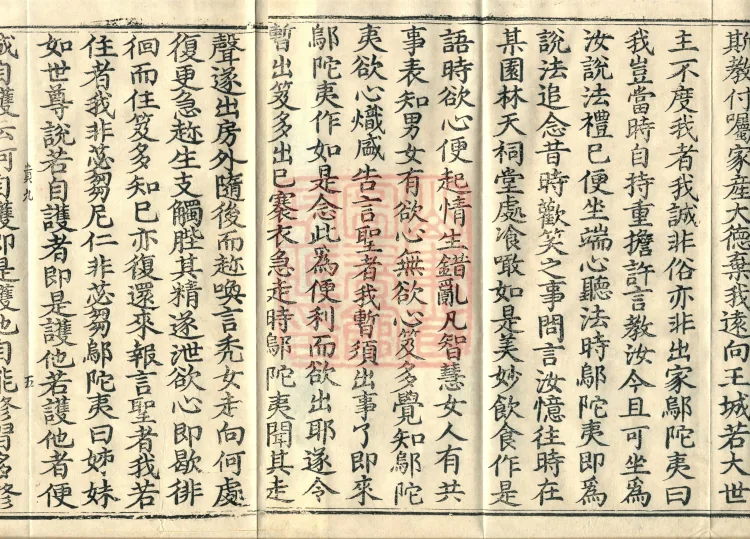 斯教付囑家産大德棄我遠向王城若大世
主不度我者我誠非俗亦非出家鄔陀夷曰
我豈當時自持重擔許言教汝今且可坐爲
汝說法禮已便坐端心聽法時鄔陀夷即爲
說法追念昔時歡笑之事問言汝憶往時在
某園林天祠堂處飡噉如是美妙飲食作是
語時欲心便起情生錯亂凡智慧女人有共
事表知男女有欲心無欲心笈多覺知鄔陀
夷欲心熾盛告言聖者我暫須出事了即來
鄔陀夷作如是念此爲便利而欲出耶遂令
暫出笈多出已褰衣急走時鄔陀夷聞其走
聲遂出房外隨後而趂喚言禿女走向何處
復更急趂生支觸䏶其精遂泄欲心即歇徘
徊而住笈多知已亦復還來報言聖者我若
住者我非苾芻尼仁非苾芻鄔陀夷曰姊妹
如世尊說若自護者即是護他若護他者便
成自護云何自護即是護他自能修習多修
貢九
五